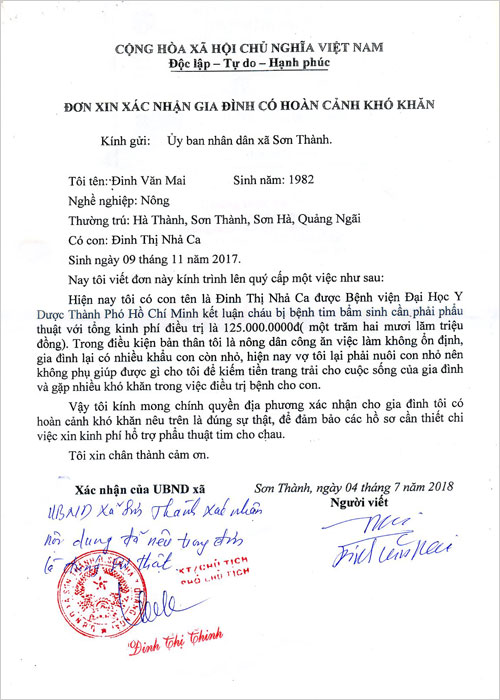 CỘNG HÒA XÃ HỘI CHỦ NGHĨA VIỆT NAM
Độc lập – Tự do – Hạnh phúc
ĐƠN XIN XÁC NHẬN GIA ĐÌNH CÓ HOÀN CẢNH KHÓ KHĂN
Kính gửi: Ủy ban nhân dân xã Sơn Thành.
Tôi tên: Đinh Văn Mai Sinh năm: 1982
Nghề nghiệp: Nông
Thường trú: Hà Thành, Sơn Thành, Sơn Hà, Quảng Ngãi
Có con: Đinh Thị Nhả Ca
Sinh ngày 09 tháng 11 năm 2017.
Nay tôi viết đơn này kính trình lên quý cấp một việc như sau:
Hiện nay tôi có con tên là Đinh Thị Nhả Ca được Bệnh viện Đại Học Y
Dược Thành Phố Hồ Chí Minh kết luận cháu bị bệnh tim bẩm sinh cần phải phẩu
thuật với tổng kinh phí điều trị là 125.000.0000đ( một trăm hai mươi lăm triệu
đồng). Trong điều kiện bản thân tôi là nông dân công ăn việc làm không ổn định,
gia đình lại có nhiều khẩu con còn nhỏ, hiện nay vợ tôi lại phải nuôi con nhỏ nên
không phụ giúp được gì cho tôi để kiếm tiền trang trải cho cuộc sống của gia đình
và gặp nhiều khó khăn trong việc điều trị bệnh cho con.
Vậy tôi kính mong chính quyền địa phương xác nhận cho gia đình tôi có
hoàn cảnh khó khăn nêu trên là đúng sự thật, để đảm bảo các hồ sơ cần thiết chi
việc xin kinh phí hổ trợ phẩu thuật tim cho chau.
Tôi xin chân thành cảm ơn.
Sơn Thành, ngày 04 tháng 7 năm 2018
Xác nhận của UBND xã
Người viết
UBND Xã Sơn Thành xác nhận
nội dung đã nêu trong đơn
là đúng sự thật
KT/CHỦ TỊCH
PHÓ CHỦ TỊCH
Đinh Văn Mai
Đinh Thị Chinh